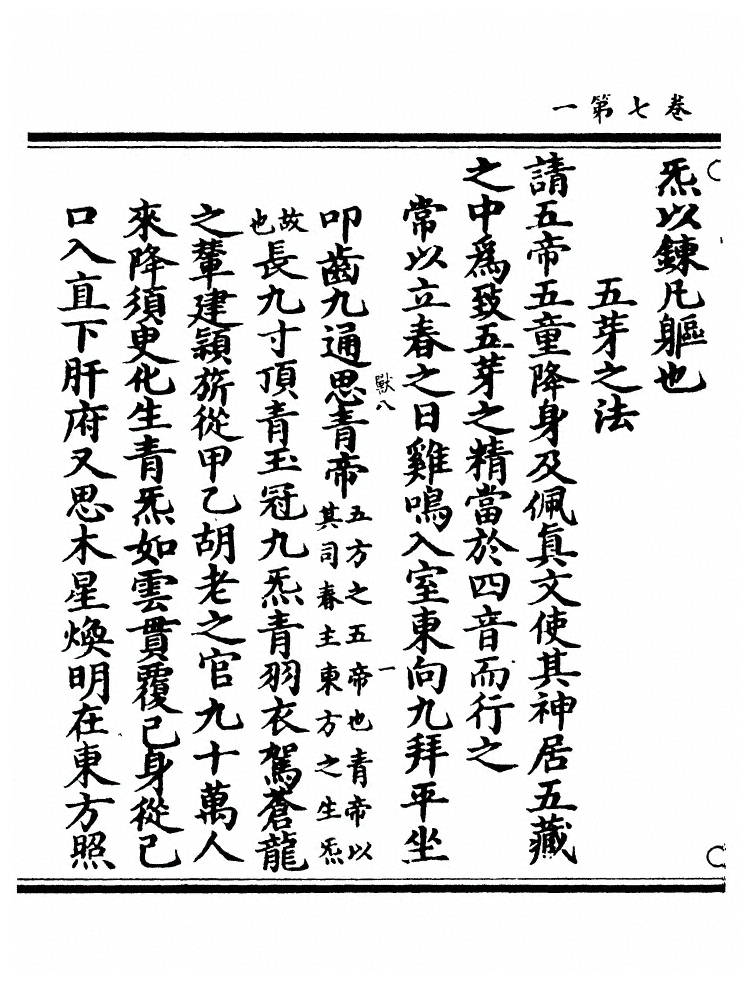 卷七第一
炁以鍊凡軀也
五芽之法
請五帝五童降身及佩眞文使其神居五藏
之中爲致五芽之精當於四音而行之
常以立春之日雞鳴入室東向九拜平坐
獸八
一
叩齒九通思青帝
五方之五帝也青帝以
其司春主東方之生炁
故
也
長九寸頂青玉冠九炁青羽衣駕蒼龍
之輦建頴旂從甲乙胡老之官九十萬人
來降須臾化生青炁如雲貫覆己身從己
口入直下肝府又思木星煥明在東方照